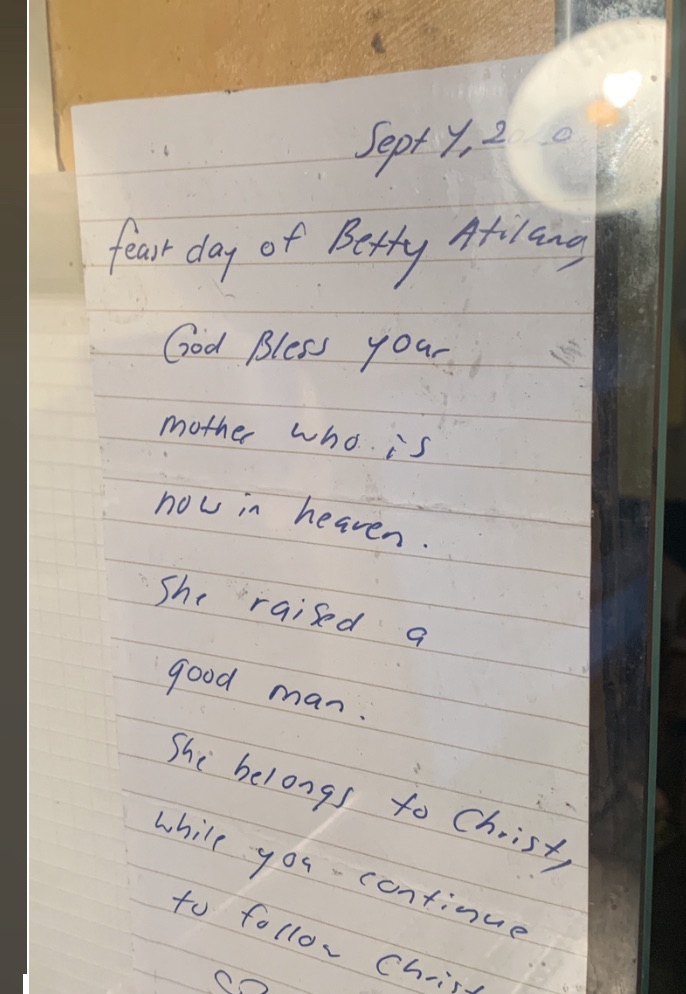 Sept 4, 2020
feast day of Betty Atilano,
God Bless your
mother who is
now in heaven.
She raised a
good man.
She belongs to Christ,
while you continue
to follow Christ